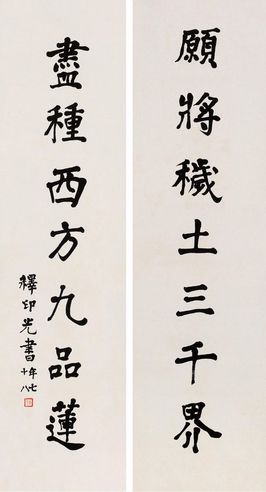 願將穢土三千界
盡種西方九品蓮
釋印光書
年七十八